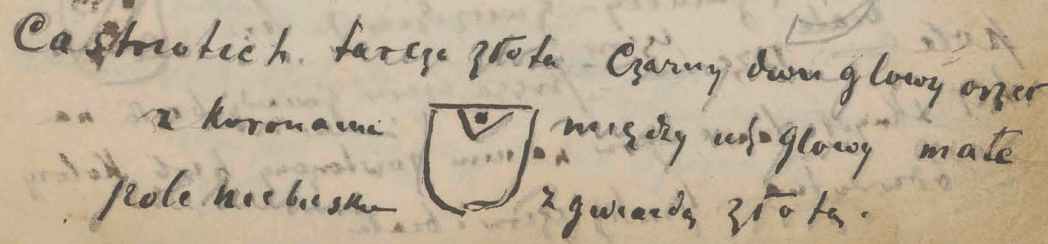 Castriotich. tarcza złota Czarny dwu głowy orzeł
z koronami między głowy małe
pole niebieskie z gwiazdą złotą.